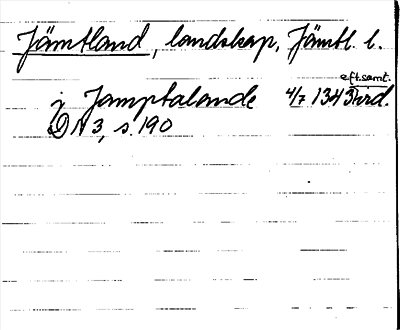 Jämtland, landskap, Jämtl. l.
eft. samt.
j Jamptalande 4/7 1343
DN 3, s. 190